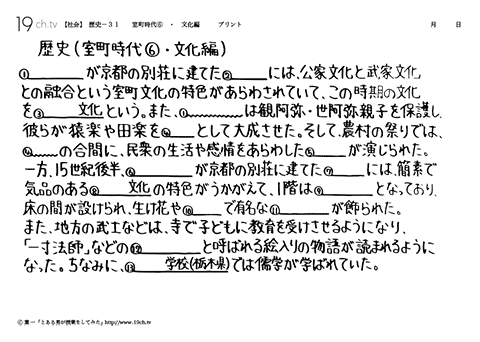 19ch.tv 【社会】 歴史－31 室町時代⑥ ・ 文化編 プリント 月 日
歴史(室町時代⑥・文化編)
①______が京都の別荘に建てた②______には、公家文化と武家文化
との融合という室町文化の特色があらわされていて、この時期の文化
を③____文化という。また、①______は観阿弥・世阿弥親子を保護し、
彼らが猿楽や田楽を④____として大成させた。そして、農村の祭りでは、
④____の合間に、民衆の生活や感情をあらわした⑤____が演じられた。
一方、15世紀後半、⑥______が京都の別荘に建てた⑦____には、簡素で
気品のある⑧____文化の特色がうかがえて、1階は⑨______となっており、
床の間が設けられ、生け花や⑩____で有名な⑪______が飾られた。
また、地方の武士などは、寺で子どもに教育を受けさせるようになり、
「一寸法師」などの⑫______と呼ばれる絵入りの物語が読まれるように
なった。ちなみに、⑬____学校(栃木県)では儒学が学ばれていた。
© 葉一「とある男が授業をしてみた」http://www.19ch.tv